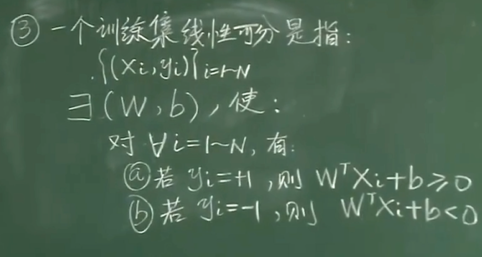 ③ 一个训练集线性可分是指:
{(Xi,yi)}i=1~N
∃(W,b),使:
对∀i=1~N,有:
ⓐ若 yi=+1,则 WᵀXi+b≥0
ⓑ若 yi=-1,则 WᵀXi+b<0